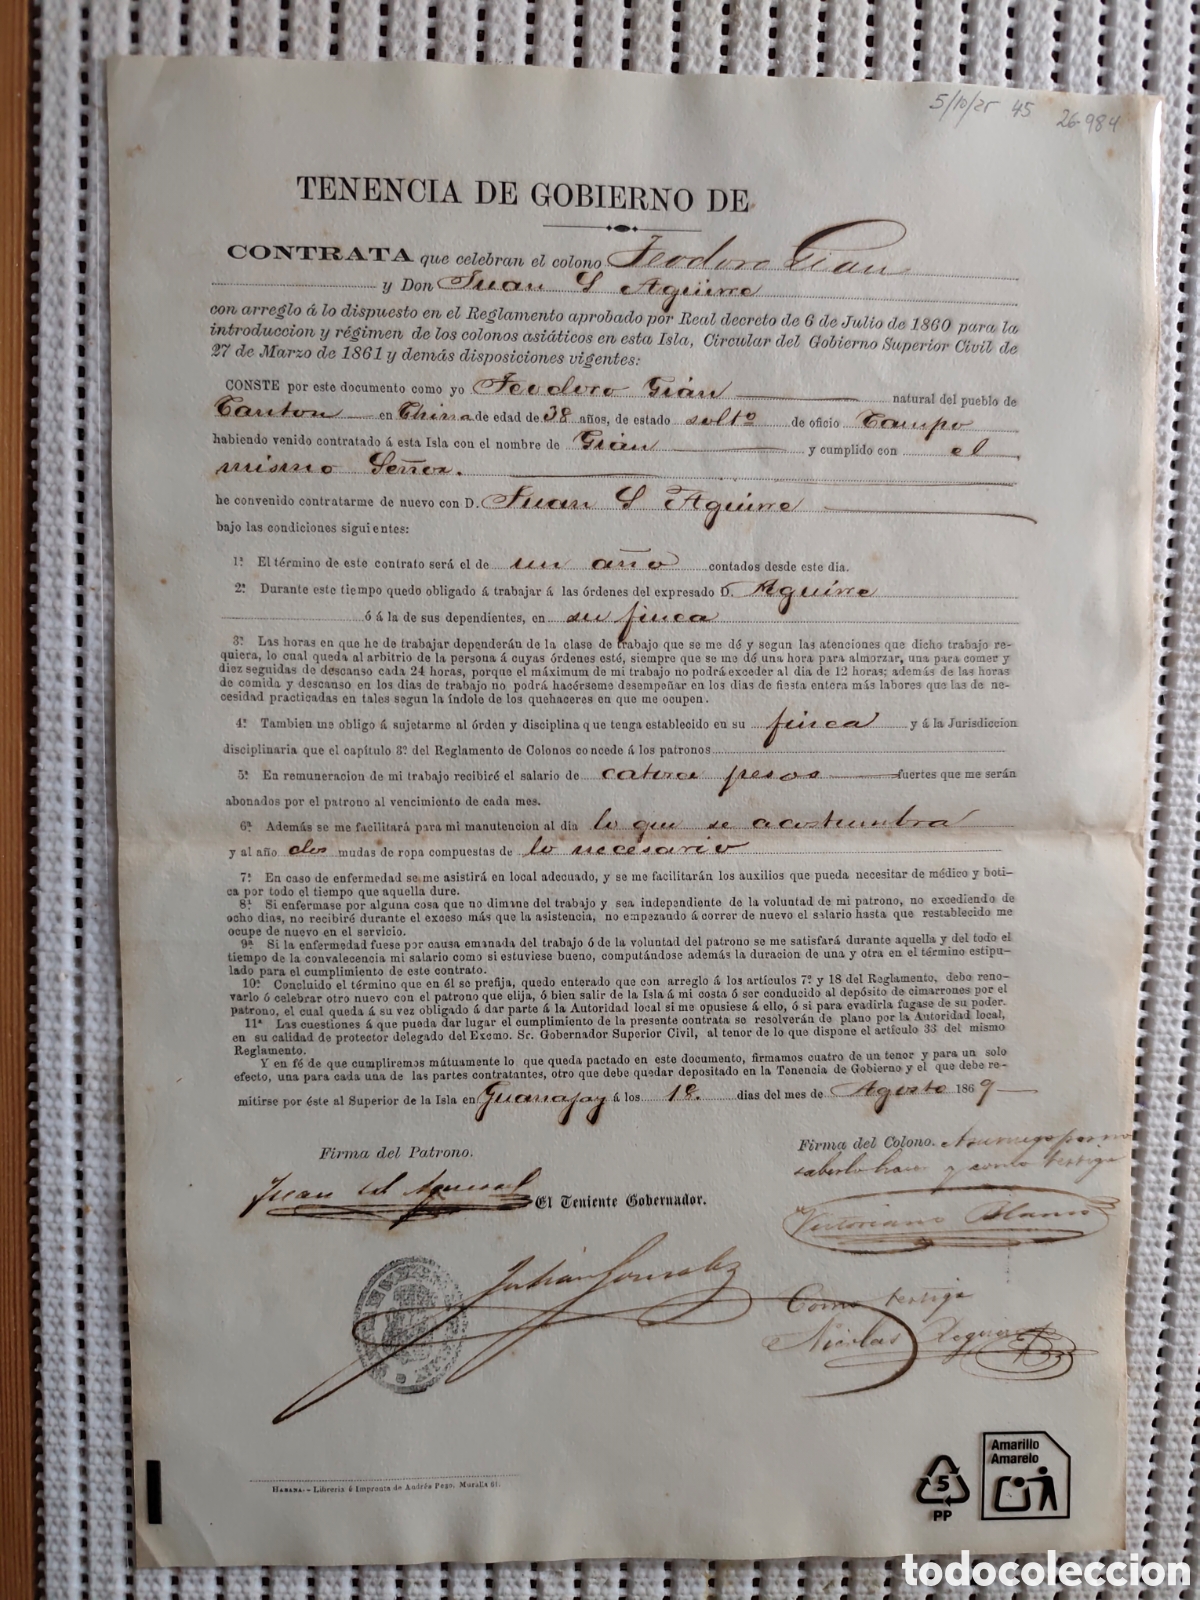 5/10/25 45 26-984
TENENCIA DE GOBIERNO DE
CONTRATA que celebran el colono Teodoro Gian
y Don Juan S Aguirre
con arreglo á lo dispuesto en el Reglamento aprobado por Real decreto de 6 de Julio de 1860 para la
introduccion y régimen de los colonos asiáticos en esta Isla, Circular del Gobierno Superior Civil de
27 de Marzo de 1861 y demás disposiciones vigentes:
CONSTE por este documento como yo Teodoro Gián natural del pueblo de
Canton en China de edad de 38 años, de estado solto de oficio Campo
habiendo venido contratado á esta Isla con el nombre de Gián y cumplido con el
mismo Señor.
he convenido contratarme de nuevo con D. Juan S Aguirre
bajo las condiciones siguientes:
1ª El término de este contrato será el de un año contados desde este dia.
2ª Durante este tiempo quedo obligado á trabajar á las órdenes del expresado D. Aguirre
ó á la de sus dependientes, en su finca
3ª Las horas en que he de trabajar dependerán de la clase de trabajo que se me dé y segun las atenciones que dicho trabajo re-
quiera, lo cual queda al arbitrio de la persona á cuyas órdenes esté, siempre que se me dé una hora para almorzar, una para comer y
diez seguidas de descanso cada 24 horas, porque el máximum de mi trabajo no podrá exceder al dia de 12 horas; además de las horas
de comida y descanso en los dias de trabajo no podrá hacérseme desempeñar en los dias de fiesta entera más labores que las de ne-
cesidad practicadas en tales segun la índole de los quehaceres en que me ocupen.
4ª Tambien me obligo á sujetarme al órden y disciplina que tenga establecido en su finca y á la Jurisdiccion
disciplinaria que el capítulo 3º del Reglamento de Colonos concede á los patronos
5ª En remuneracion de mi trabajo recibiré el salario de catorce pesos fuertes que me serán
abonados por el patrono al vencimiento de cada mes.
6ª Además se me facilitará para mi manutencion al dia lo que se acostumbra
y al año dos mudas de ropa compuestas de lo necesario
7ª En caso de enfermedad se me asistirá en local adecuado, y se me facilitarán los auxilios que pueda necesitar de médico y boti-
ca por todo el tiempo que aquella dure.
8ª Si enfermase por alguna cosa que no dimane del trabajo y sea independiente de la voluntad de mi patrono, no excediendo de
ocho dias, no recibiré durante el exceso más que la asistencia, no empezando á correr de nuevo el salario hasta que restablecido me
ocupe de nuevo en el servicio.
9ª Si la enfermedad fuese por causa emanada del trabajo ó de la voluntad del patrono se me satisfará durante aquella y del todo el
tiempo de la convalecencia mi salario como si estuviese bueno, computándose además la duracion de una y otra en el término estipu-
lado para el cumplimiento de este contrato.
10ª Concluido el término que en él se prefija, quedo enterado que con arreglo á los artículos 7º y 18 del Reglamento, debo reno-
varlo ó celebrar otro nuevo con el patrono que elija, ó bien salir de la Isla á mi costa ó ser conducido al depósito de cimarrones por el
patrono, el cual queda á su vez obligado á dar parte á la Autoridad local si me opusiese á ello, ó si para evadirla fugase de su poder.
11ª Las cuestiones á que pueda dar lugar el cumplimiento de la presente contrata se resolverán de plano por la Autoridad local,
en su calidad de protector delegado del Excmo. Sr. Gobernador Superior Civil, al tenor de lo que dispone el artículo 33 del mismo
Reglamento.
Y en fé de que cumpliremos mútuamente lo que queda pactado en este documento, firmamos cuatro de un tenor y para un solo
efecto, una para cada una de las partes contratantes, otro que debe quedar depositado en la Tenencia de Gobierno y el que debe re-
mitirse por éste al Superior de la Isla en Guanajay á los 18. dias del mes de Agosto 1869
Firma del Patrono.
Firma del Colono. A su ruego por no
saberlo hacer y como testigo
Juan
El Teniente Gobernador.
Victoriano Blanco
Julián Gonzalez
Como testigo
Nicolas
HABANA.—Librería é Imprenta de Andrés Pego. Muralla 61.
Amarillo
Amarelo
5
PP
todocoleccion